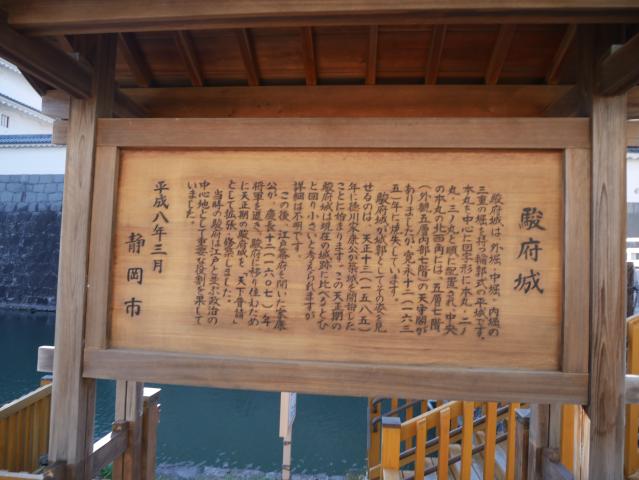 駿府城
駿府城は、外堀・中堀・内堀の
三重の堀を持つ輪郭式の平城です。
本丸を中心に回字形に本丸、二ノ
丸、三ノ丸と順に配置され、中央
の本丸の北西角には、五層七階
(外観五層内部七階)の天守閣が
ありましたが、寛永十二(一六三
五)年に焼失しています。
駿府城が城郭としてその姿を見
せるのは、天正十三(一五八五)
年に徳川家康公が築城を開始した
ことに始まります。この天正期の
駿府城は現在の城跡に比べるとひ
と回り小さいと考えられますが
詳細は不明です。
この後、江戸幕府を開いた家康
公が、慶長十二(一六〇七)年
将軍を退き、駿府に移り住むため
に天正期の駿府城を「天下普請」
として拡張・修築しました。
当時の駿府は江戸と並ぶ政治の
中心地として重要な役割を果して
いました。
平成八年三月
静岡市